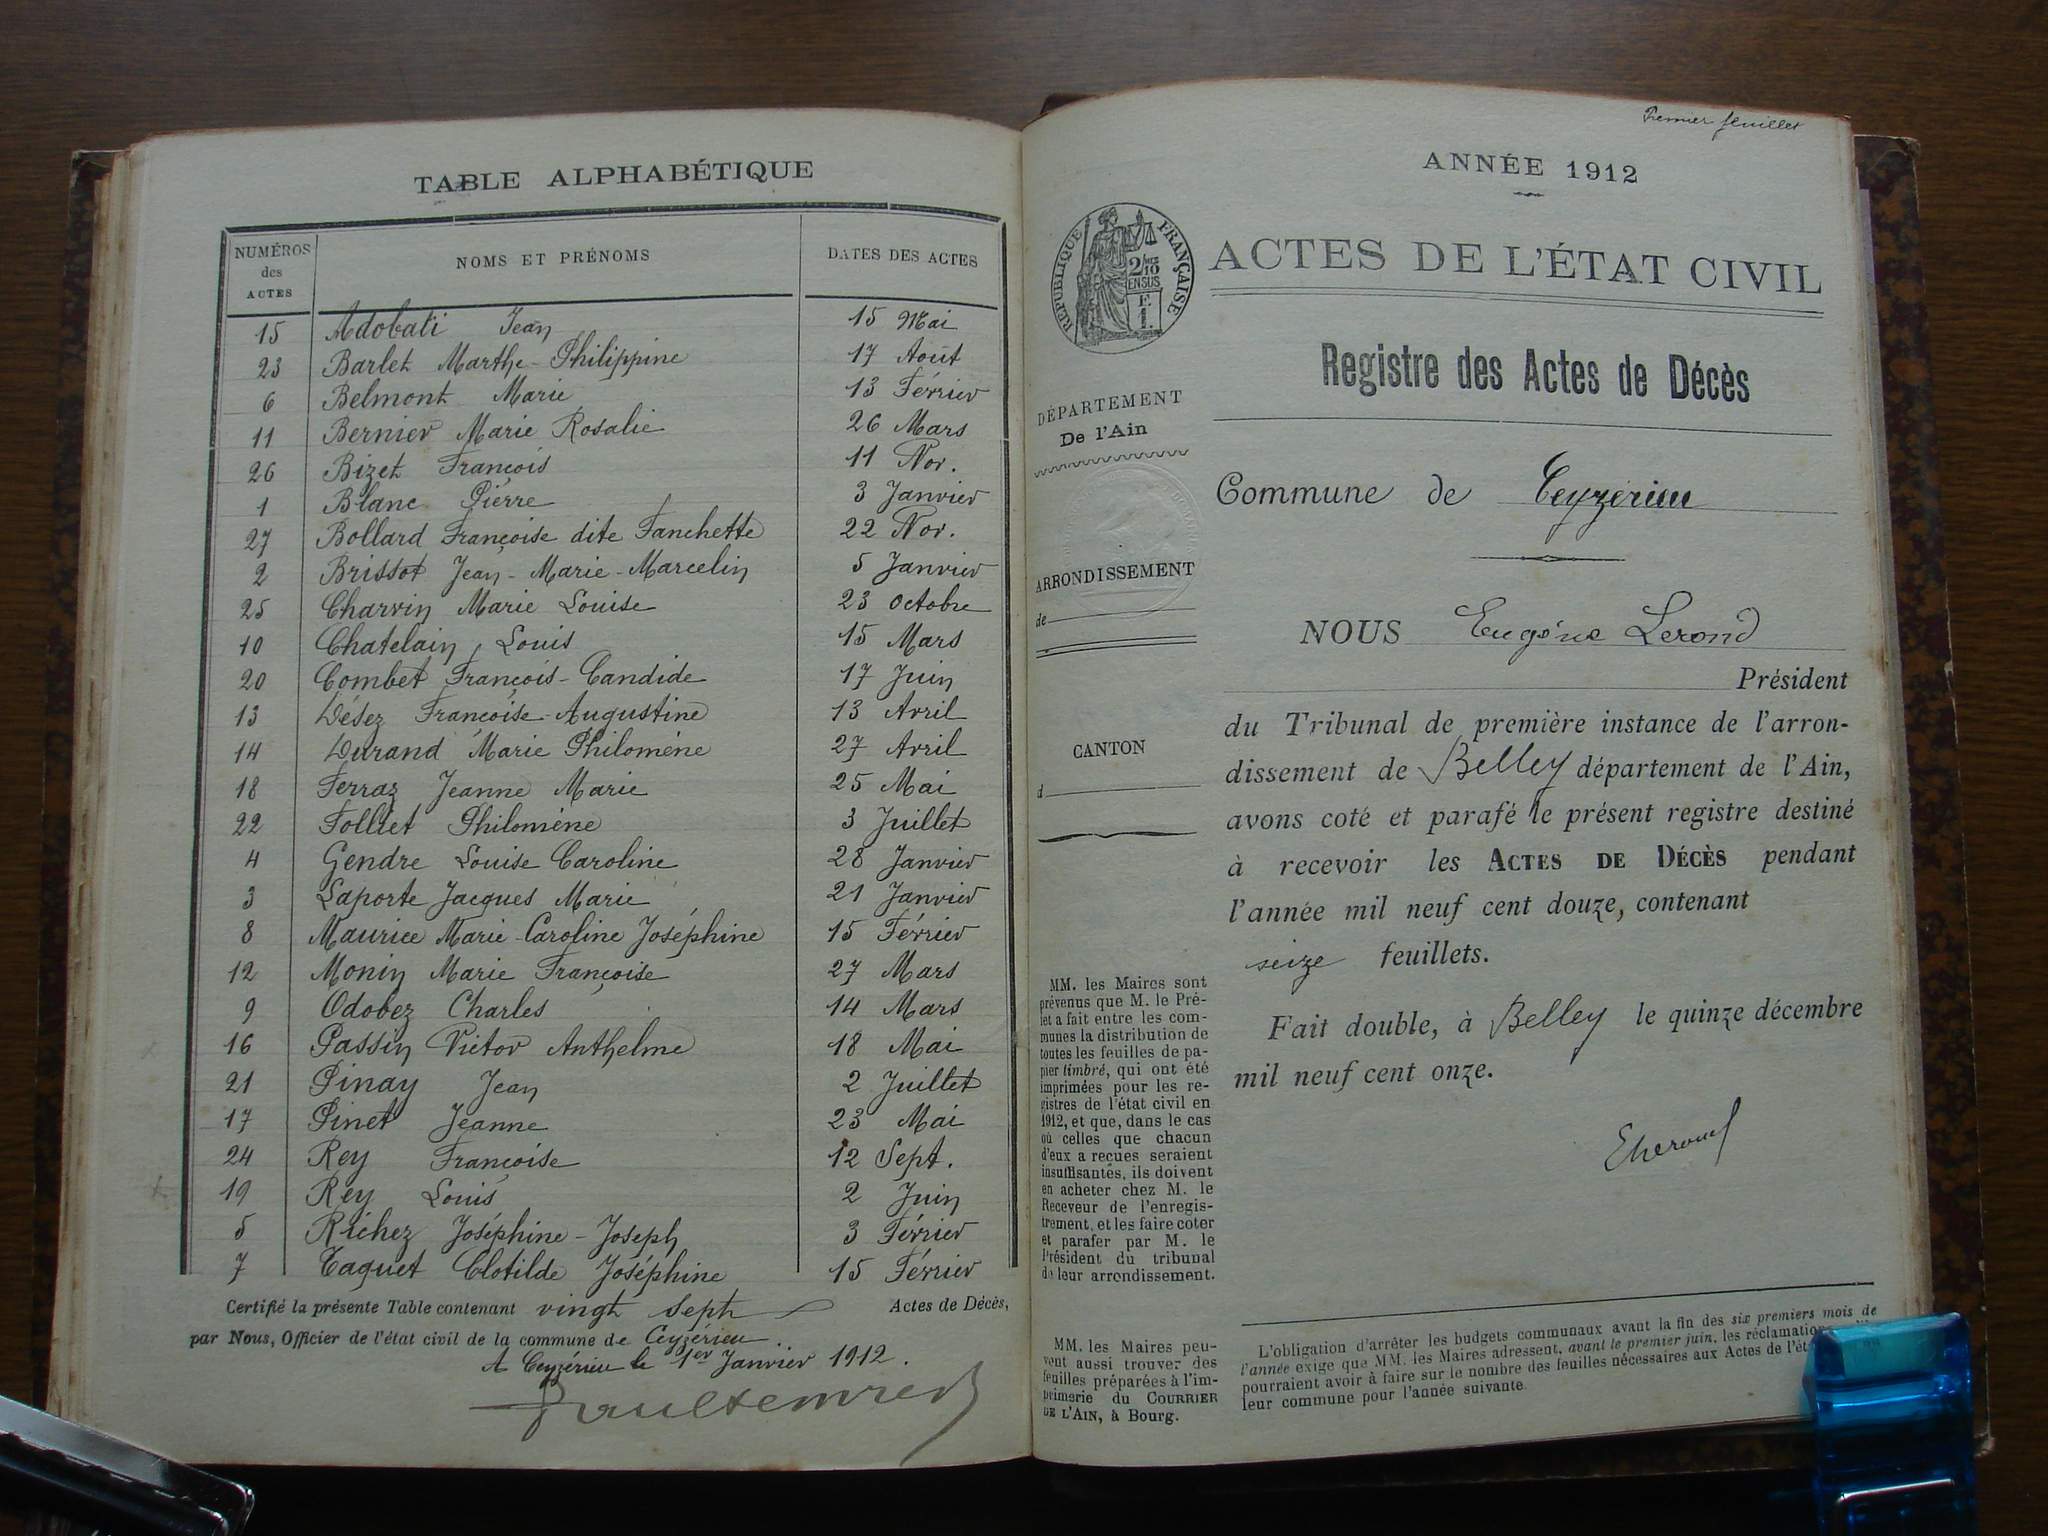 TABLE ALPHABÉTIQUE
NUMÉROS des ACTES NOMS ET PRÉNOMS DATES DES ACTES
15 Adobati Jean 15 Mai
23 Barlet Marthe-Philippine 17 Août
6 Belmont Marie 13 Février
11 Bernier Marie Rosalie 26 Mars
26 Bizet François 11 Nov.
1 Blanc Pierre 3 Janvier
27 Bollard Françoise dite Fanchette 22 Nov.
2 Brissot Jean-Marie-Marcelin 5 Janvier
25 Charvin Marie Louise 23 Octobre
10 Chatelain Louis 15 Mars
20 Combet François-Candide 17 Juin
13 Désez Françoise-Augustine 13 Avril
14 Durand Marie Philomène 27 Avril
18 Ferraz Jeanne Marie 25 Mai
22 Folliet Philomène 3 Juillet
4 Gendre Louise Caroline 28 Janvier
3 Laporte Jacques Marie 21 Janvier
8 Maurice Marie-Caroline Joséphine 15 Février
12 Monin Marie Françoise 27 Mars
9 Odobez Charles 14 Mars
16 Passin Victor Anthelme 18 Mai
21 Pinay Jean 2 Juillet
17 Pinet Jeanne 23 Mai
24 Rey Françoise 12 Sept.
19 Rey Louis 2 Juin
5 Richez Joséphine-Joseph 3 Février
7 Taquet Clotilde Joséphine 15 Février
Certifié la présente Table contenant vingt sept Actes de Décès,
par Nous, Officier de l'état civil de la commune de Ceyzérieu.
A Ceyzérieu le 1er Janvier 1912.
Premier feuillet
ANNÉE 1912
RÉPUBLIQUE FRANÇAISE
2/10 EN SUS
E.
1.
ACTES DE L'ÉTAT CIVIL
Registre des Actes de Décès
DÉPARTEMENT
De l'Ain
Commune de Ceyzérieu
ARRONDISSEMENT
de
NOUS Eugène Lerond
Président
du Tribunal de première instance de l'arron-
dissement de Belley département de l'Ain,
avons coté et parafé le présent registre destiné
à recevoir les ACTES DE DÉCÈS pendant
l'année mil neuf cent douze, contenant
seize feuillets.
Fait double, à Belley le quinze décembre
mil neuf cent onze.
CANTON
d
MM. les Maires sont
prévenus que M. le Pré-
fet a fait entre les com-
munes la distribution de
toutes les feuilles de pa-
pier timbré, qui ont été
imprimées pour les re-
gistres de l'état civil en
1912, et que, dans le cas
où celles que chacun
d'eux a reçues seraient
insuffisantes, ils doivent
en acheter chez M. le
Receveur de l'enregis-
trement, et les faire coter
et parafer par M. le
Président du tribunal
de leur arrondissement.
MM. les Maires peu-
vent aussi trouver des
feuilles préparées à l'im-
primerie du COURRIER
DE L'AIN, à Bourg.
L'obligation d'arrêter les budgets communaux avant la fin des six premiers mois de
l'année exige que MM. les Maires adressent, avant le premier juin, les réclamations
pourraient avoir à faire sur le nombre des feuilles nécessaires aux Actes de
leur commune pour l'année suivante.